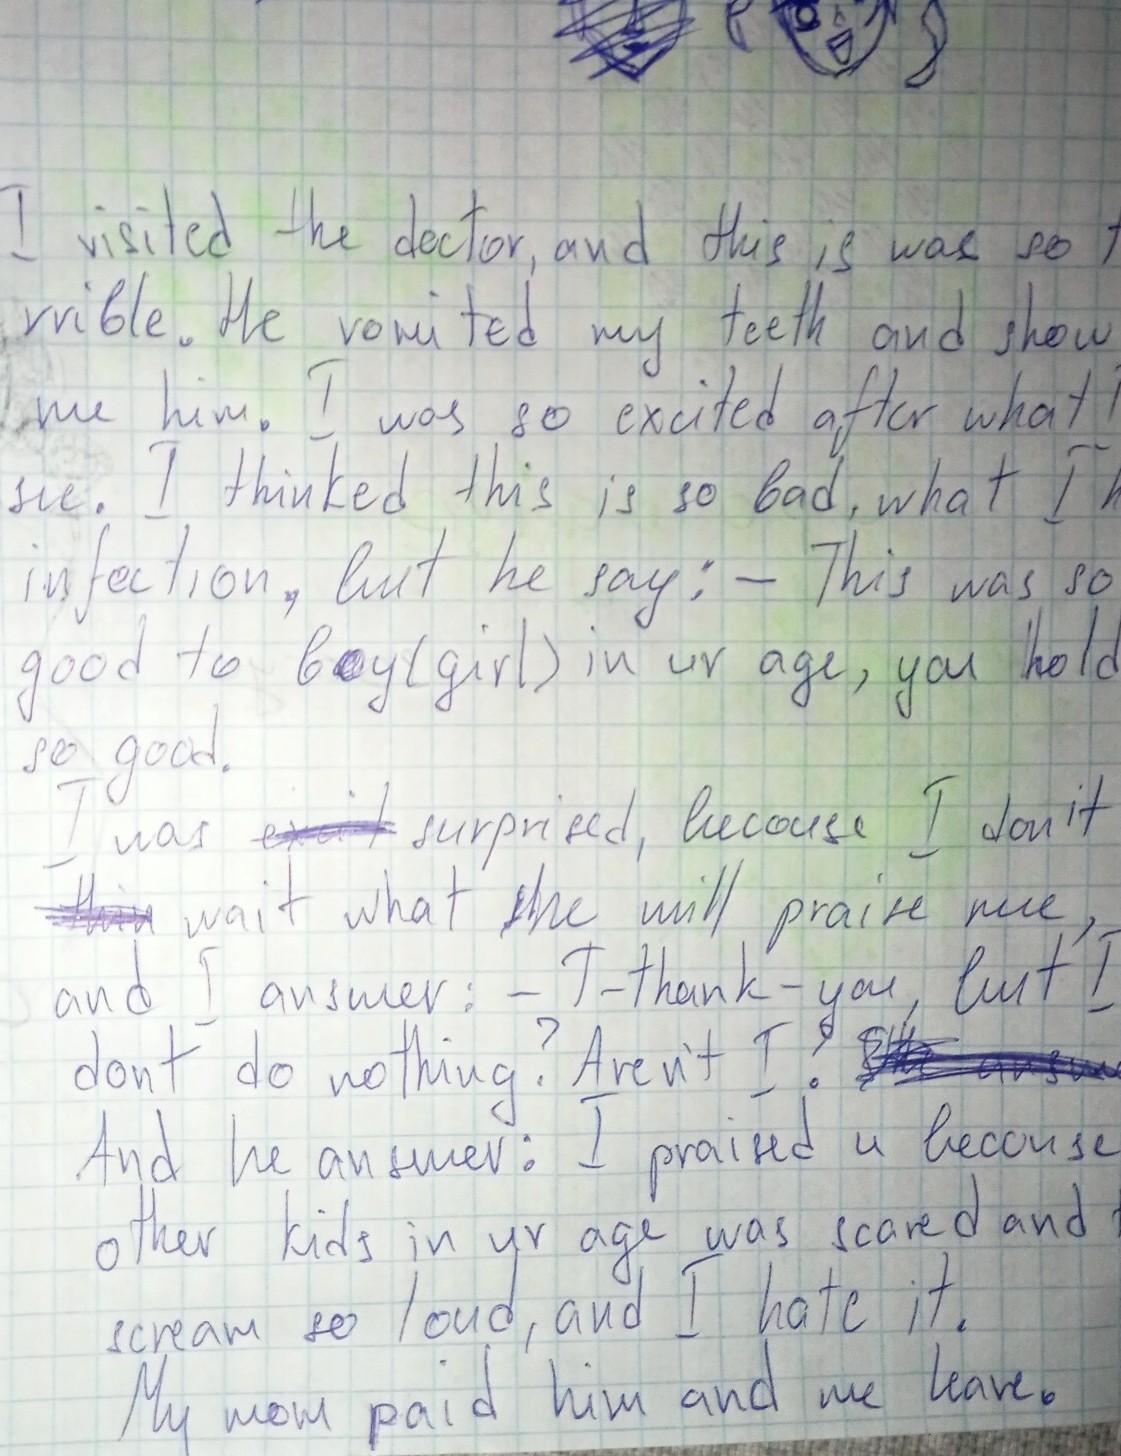 I visited the doctor, and this is was so t
rrible. He vomited my teeth and show
me him. I was so excited after what I
see. I thinked this is so bad, what I h
infection, but he say: – This was so
good to boy(girl) in ur age, you hold
so good.
I was surprised, becouse I don't
wait what she will praise me,
and I answer: – T-thank-you, but I
dont do nothing? Aren't I?
And he answer: I praised u becouse
other kids in yr age was scared and t
scream so loud, and I hate it.
My mom paid him and we leave.